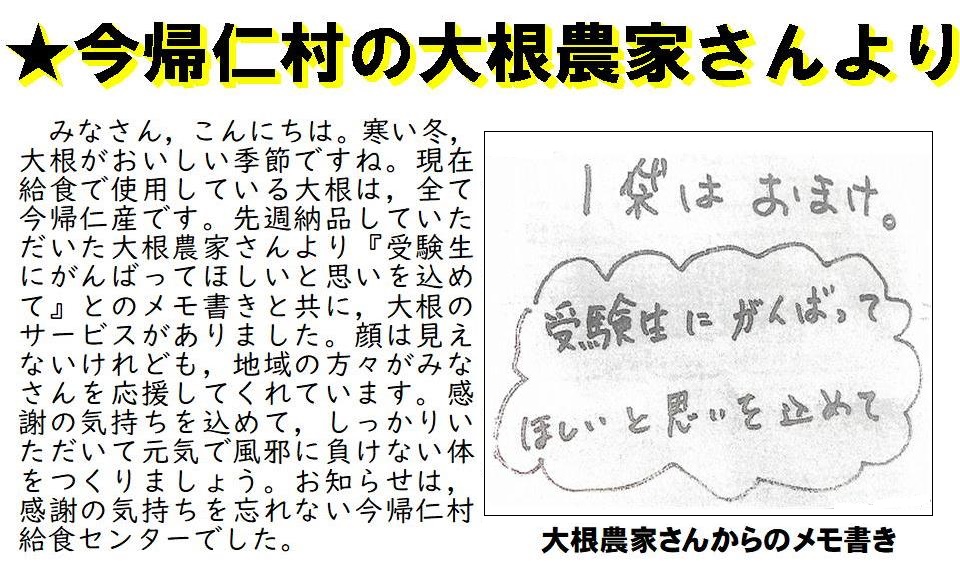 ★今帰仁村の大根農家さんより
みなさん，こんにちは。寒い冬，
大根がおいしい季節ですね。現在
給食で使用している大根は，全て
今帰仁産です。先週納品していた
だいた大根農家さんより『受験生
にがんばってほしいと思いを込め
て』とのメモ書きと共に，大根の
サービスがありました。顔は見え
ないけれども，地域の方々がみな
さんを応援してくれています。感
謝の気持ちを込めて，しっかりい
ただいて元気で風邪に負けない体
をつくりましょう。お知らせは，
感謝の気持ちを忘れない今帰仁村
給食センターでした。
1袋はおまけ。
受験生にがんばって
ほしいと思いを込めて
大根農家さんからのメモ書き